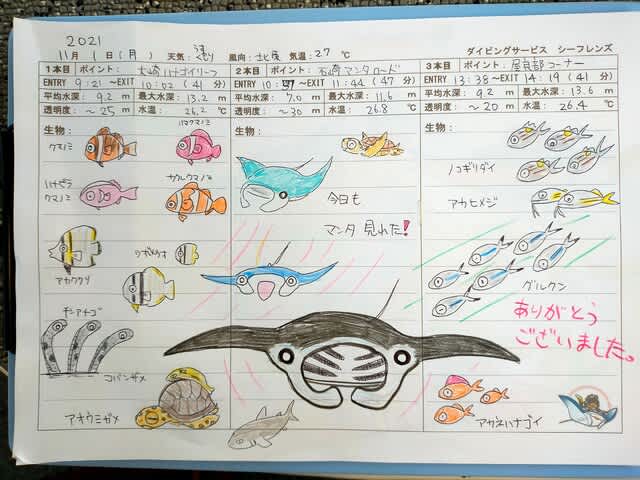 2021
11月 1日(月) 天気: 風向: 北東 気温: 27 ℃ ダイビングサービス シーフレンズ
1本目 ポイント: 大崎ハナゴイリーフ
ENTRY 9:21 ~EXIT 10:02 (41 分)
平均水深: 9.2 m 最大水深: 13.2 m
透明度: ~25 m 水温: 26.2 ℃
生物:
クマノミ
ハマクマノミ
ハナビラ
クマノミ
カクレクマノミ
アカククリ
チンアナゴ
コバンザメ
アオウミガメ
2本目 ポイント: 石崎マンタロード
ENTRY 10: ~EXIT 11:44 (47 分)
平均水深: 7.0 m 最大水深: 11.6 m
透明度: ~30 m 水温: 26.8 ℃
生物:
今日も
マンタ 見れた!
3本目 ポイント: 屋良部コーナー
ENTRY 13:38 ~EXIT 14:19 (41 分)
平均水深: 9.2 m 最大水深: 13.6 m
透明度: ~20 m 水温: 26.4 ℃
生物:
ノコギリダイ
アカヒメジ
グルクン
ありがとう
ございました。
アカネハナゴイ